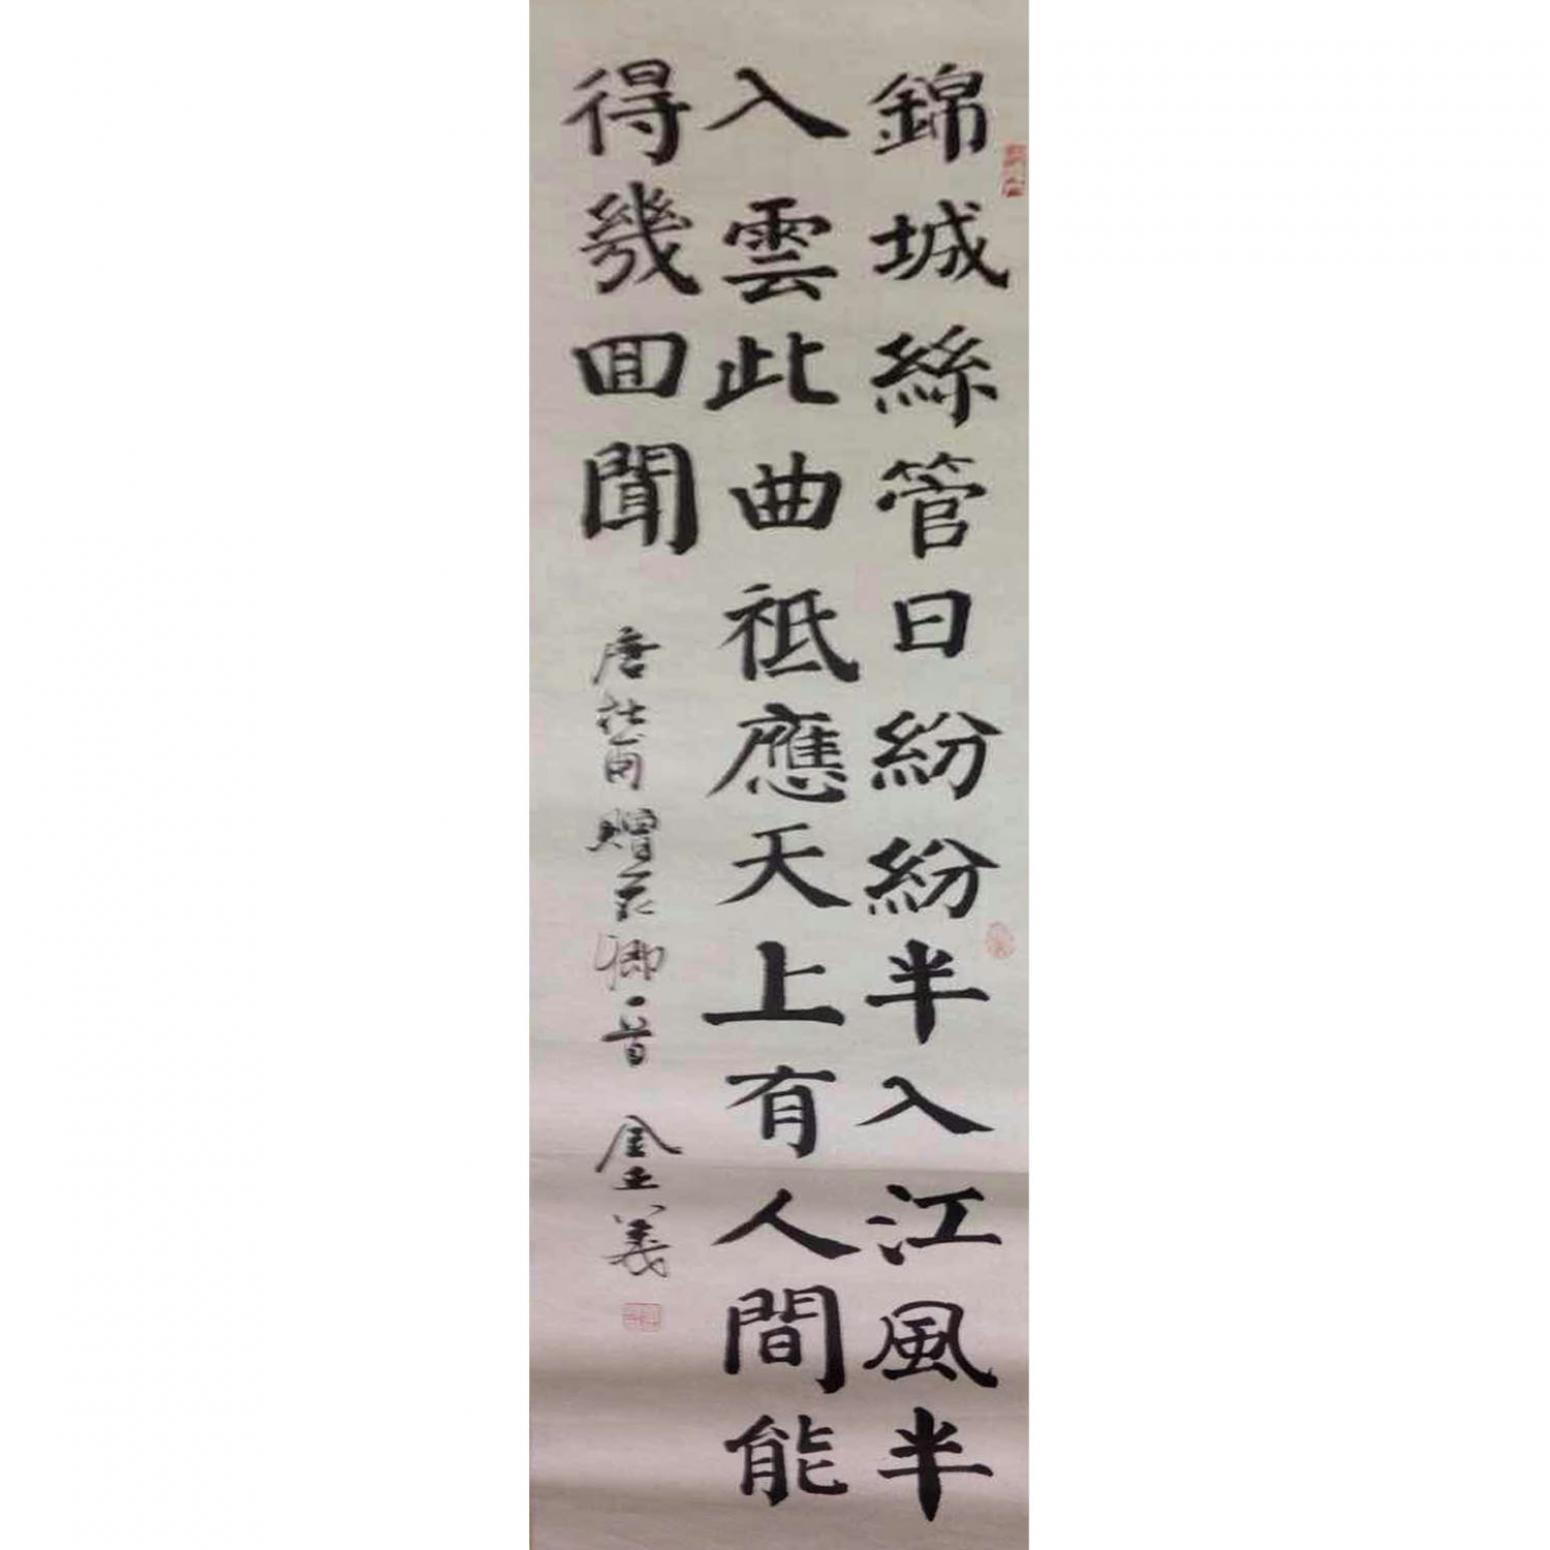 錦城絲管日紛紛半入江風半
入雲此曲祗應天上有人間能
得幾回聞
唐杜甫贈花卿一首 金正義